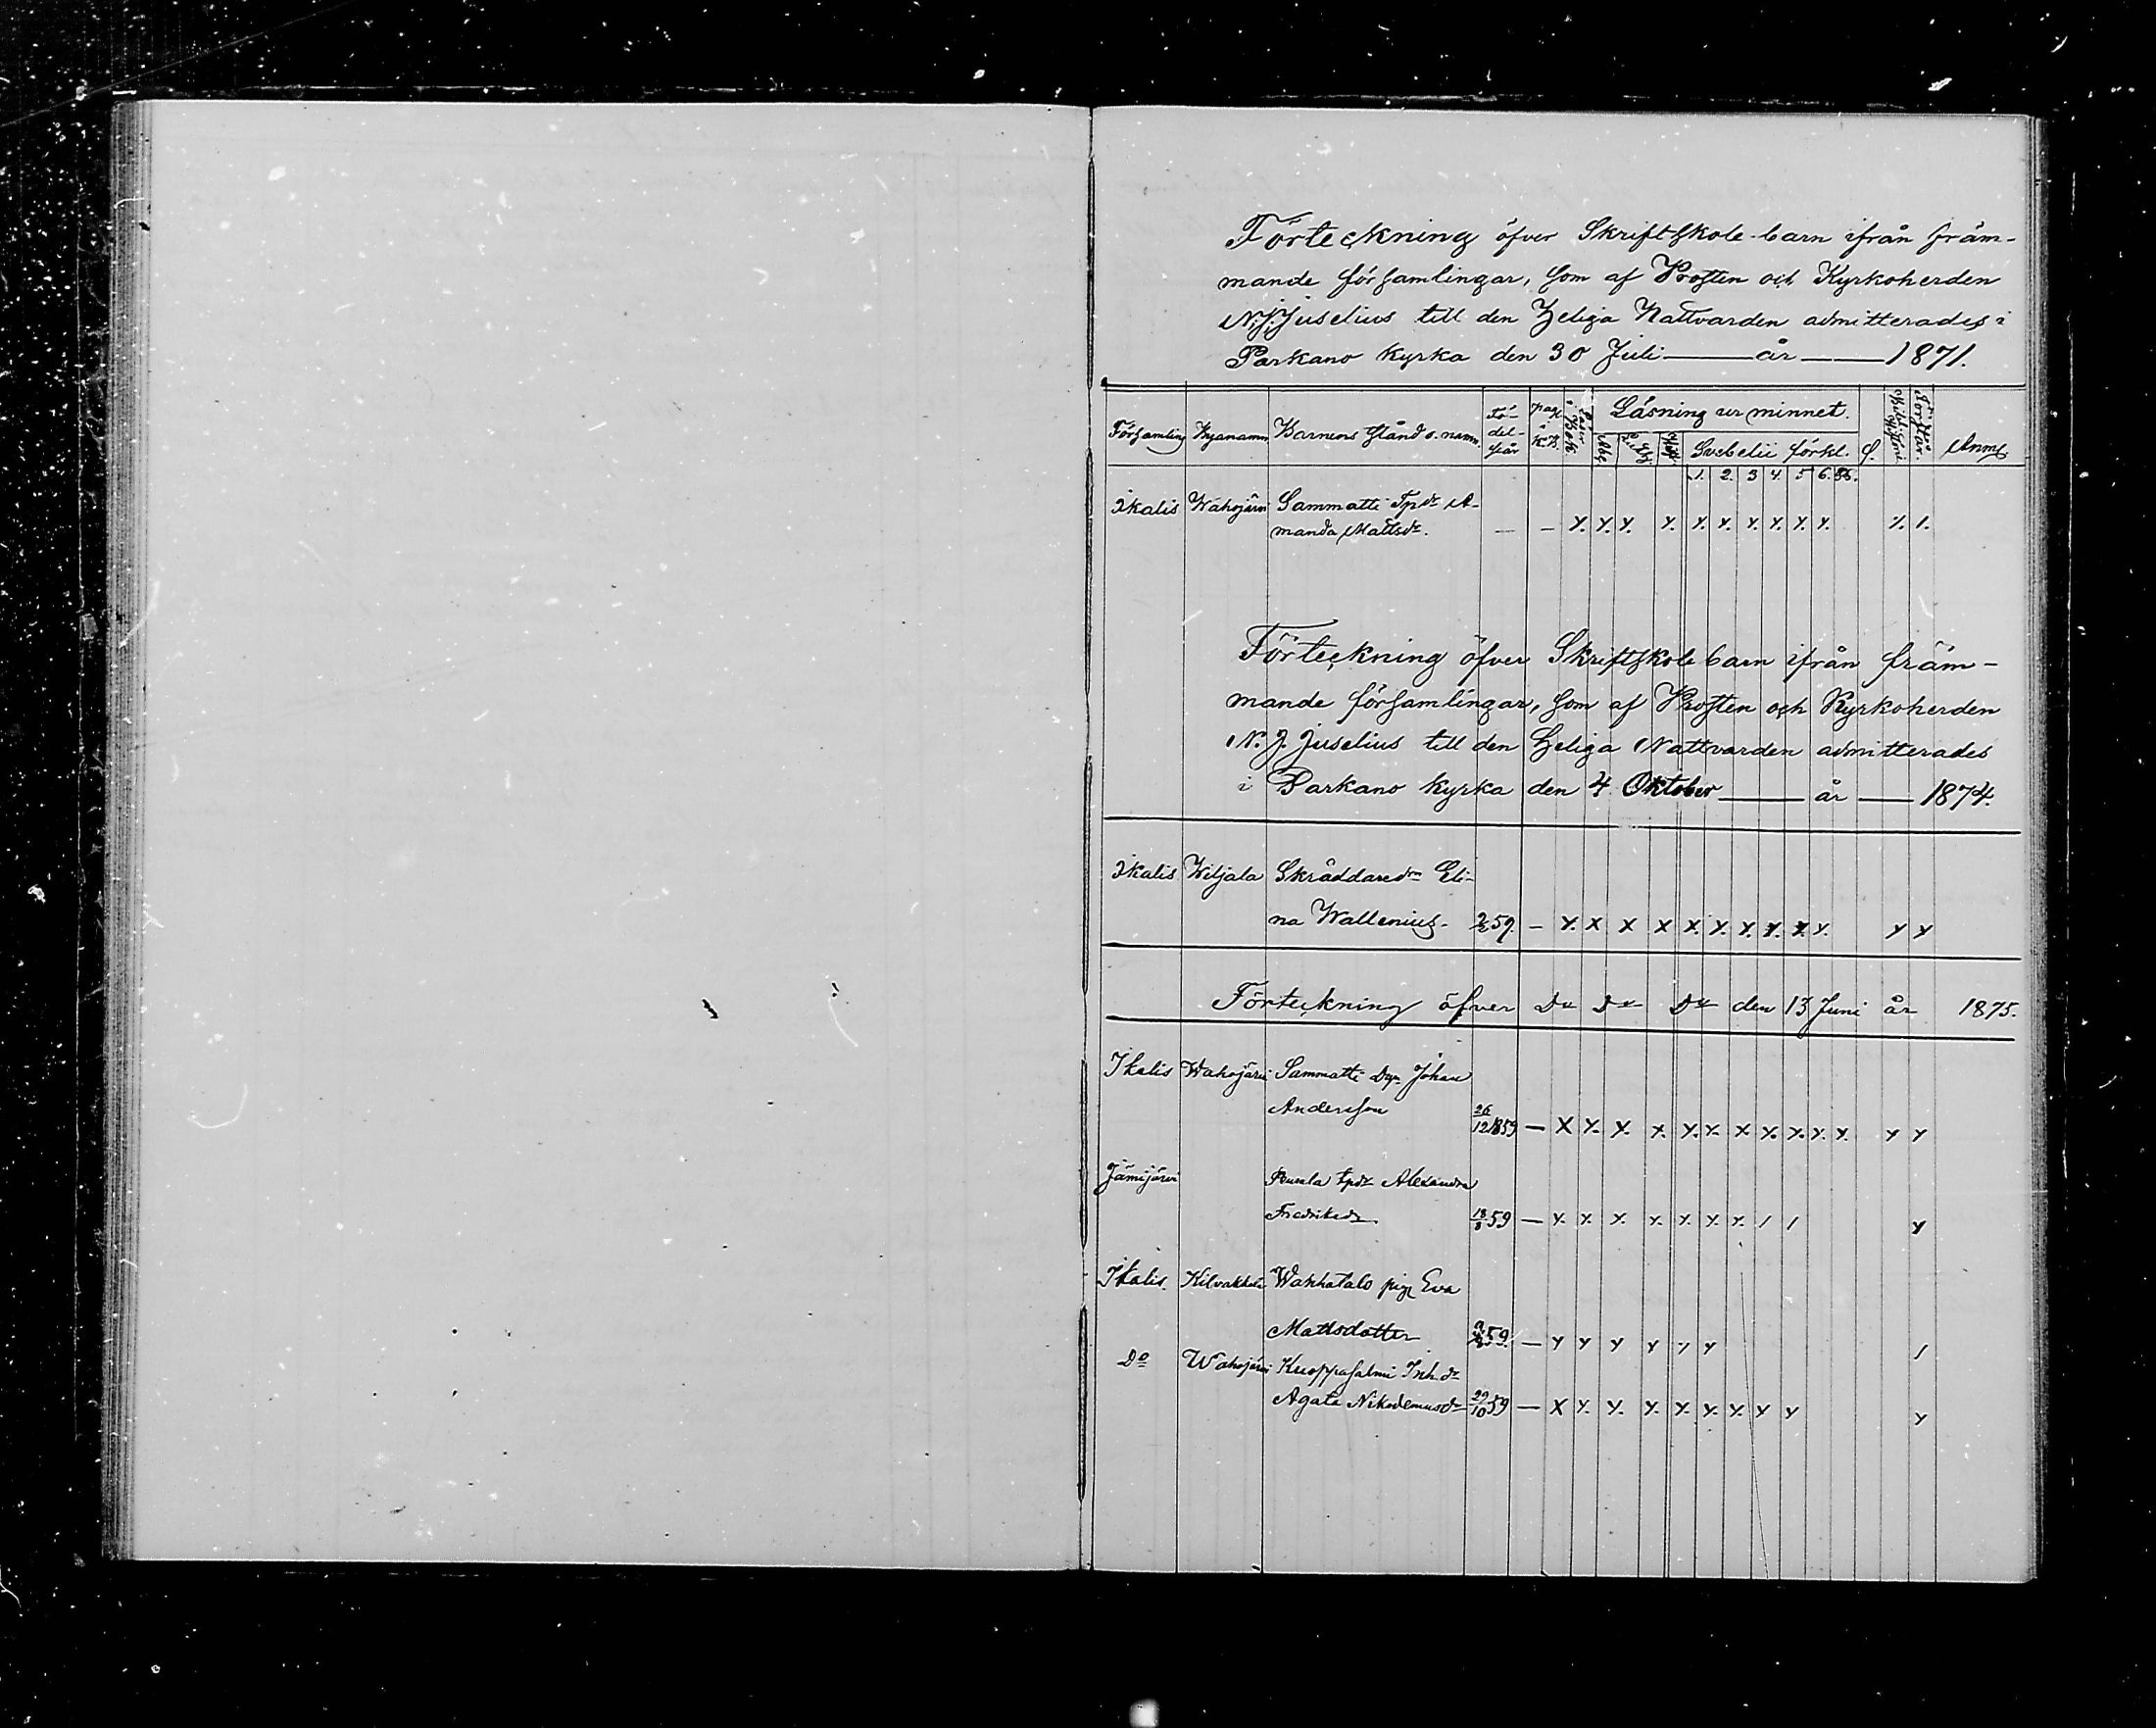 Förteckning öfver Skriftskole-barn ifrån främ-
mande församlingar, som af Prosten och Kyrkoherden
N. J. Juselius till den Heliga Nattvarden admitterades i
Parkano Kyrka den 30 Juli — år — 1871.
Församling Byanamn Barnens stånd o. namn. Fö-del-seår pag. i K.B. i Bok. Läsning ur minnet. Anm.
Abc Svebelii förkl.
1. 2. 3 4. 5 6.
Ikalis Wahojärvi Sammatti Tpdr A-
manda Mattsdr. — — x. x. x. x. x. x. x. x. x. x. x. x.
Förteckning öfver Skriftskolebarn ifrån främ-
mande församlingar, som af Prosten och Kyrkoherden
N. J. Juselius till den Heliga Nattvarden admitterades
i Parkano Kyrka den 4 Oktober — år — 1874.
Ikalis Wiljala Skräddaredr Eli-
na Wallenius. 59. — x. x x x x. x. x. x. x. x. x x
Förteckning öfver Do Do Do den 13 Juni år 1875.
Ikalis Wahojärvi Sammatti Johan
Andersson 26/12 1859 — x x. x. x. x. x. x x. x. x. x. x x
Jämijärvi tpdr Alexandra
Fredriksdr 18/8 59 — x. x. x. x. x. x. x. / / x
Ikalis. Kilvakkala Wakkatalo pig. Eva
Mattsdotter 59. — x x x x x x /
Do Wahojärvi Kuoppasalmi Inh. dr
Agata Nikodemusdr 29/10 59 — x x. x. x. x. x. x. x x x